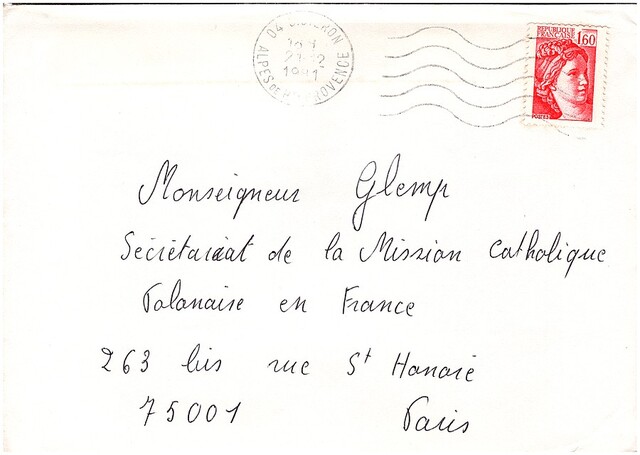 04 SISTERON
21-12
1981
ALPES DE HTE PROVENCE
REPUBLIQUE
FRANCAISE
1,60
POSTES
Monseigneur Glemp
Secrétariat de la Mission Catholique
Polonaise en France
263 bis rue St Honoré
75001 Paris